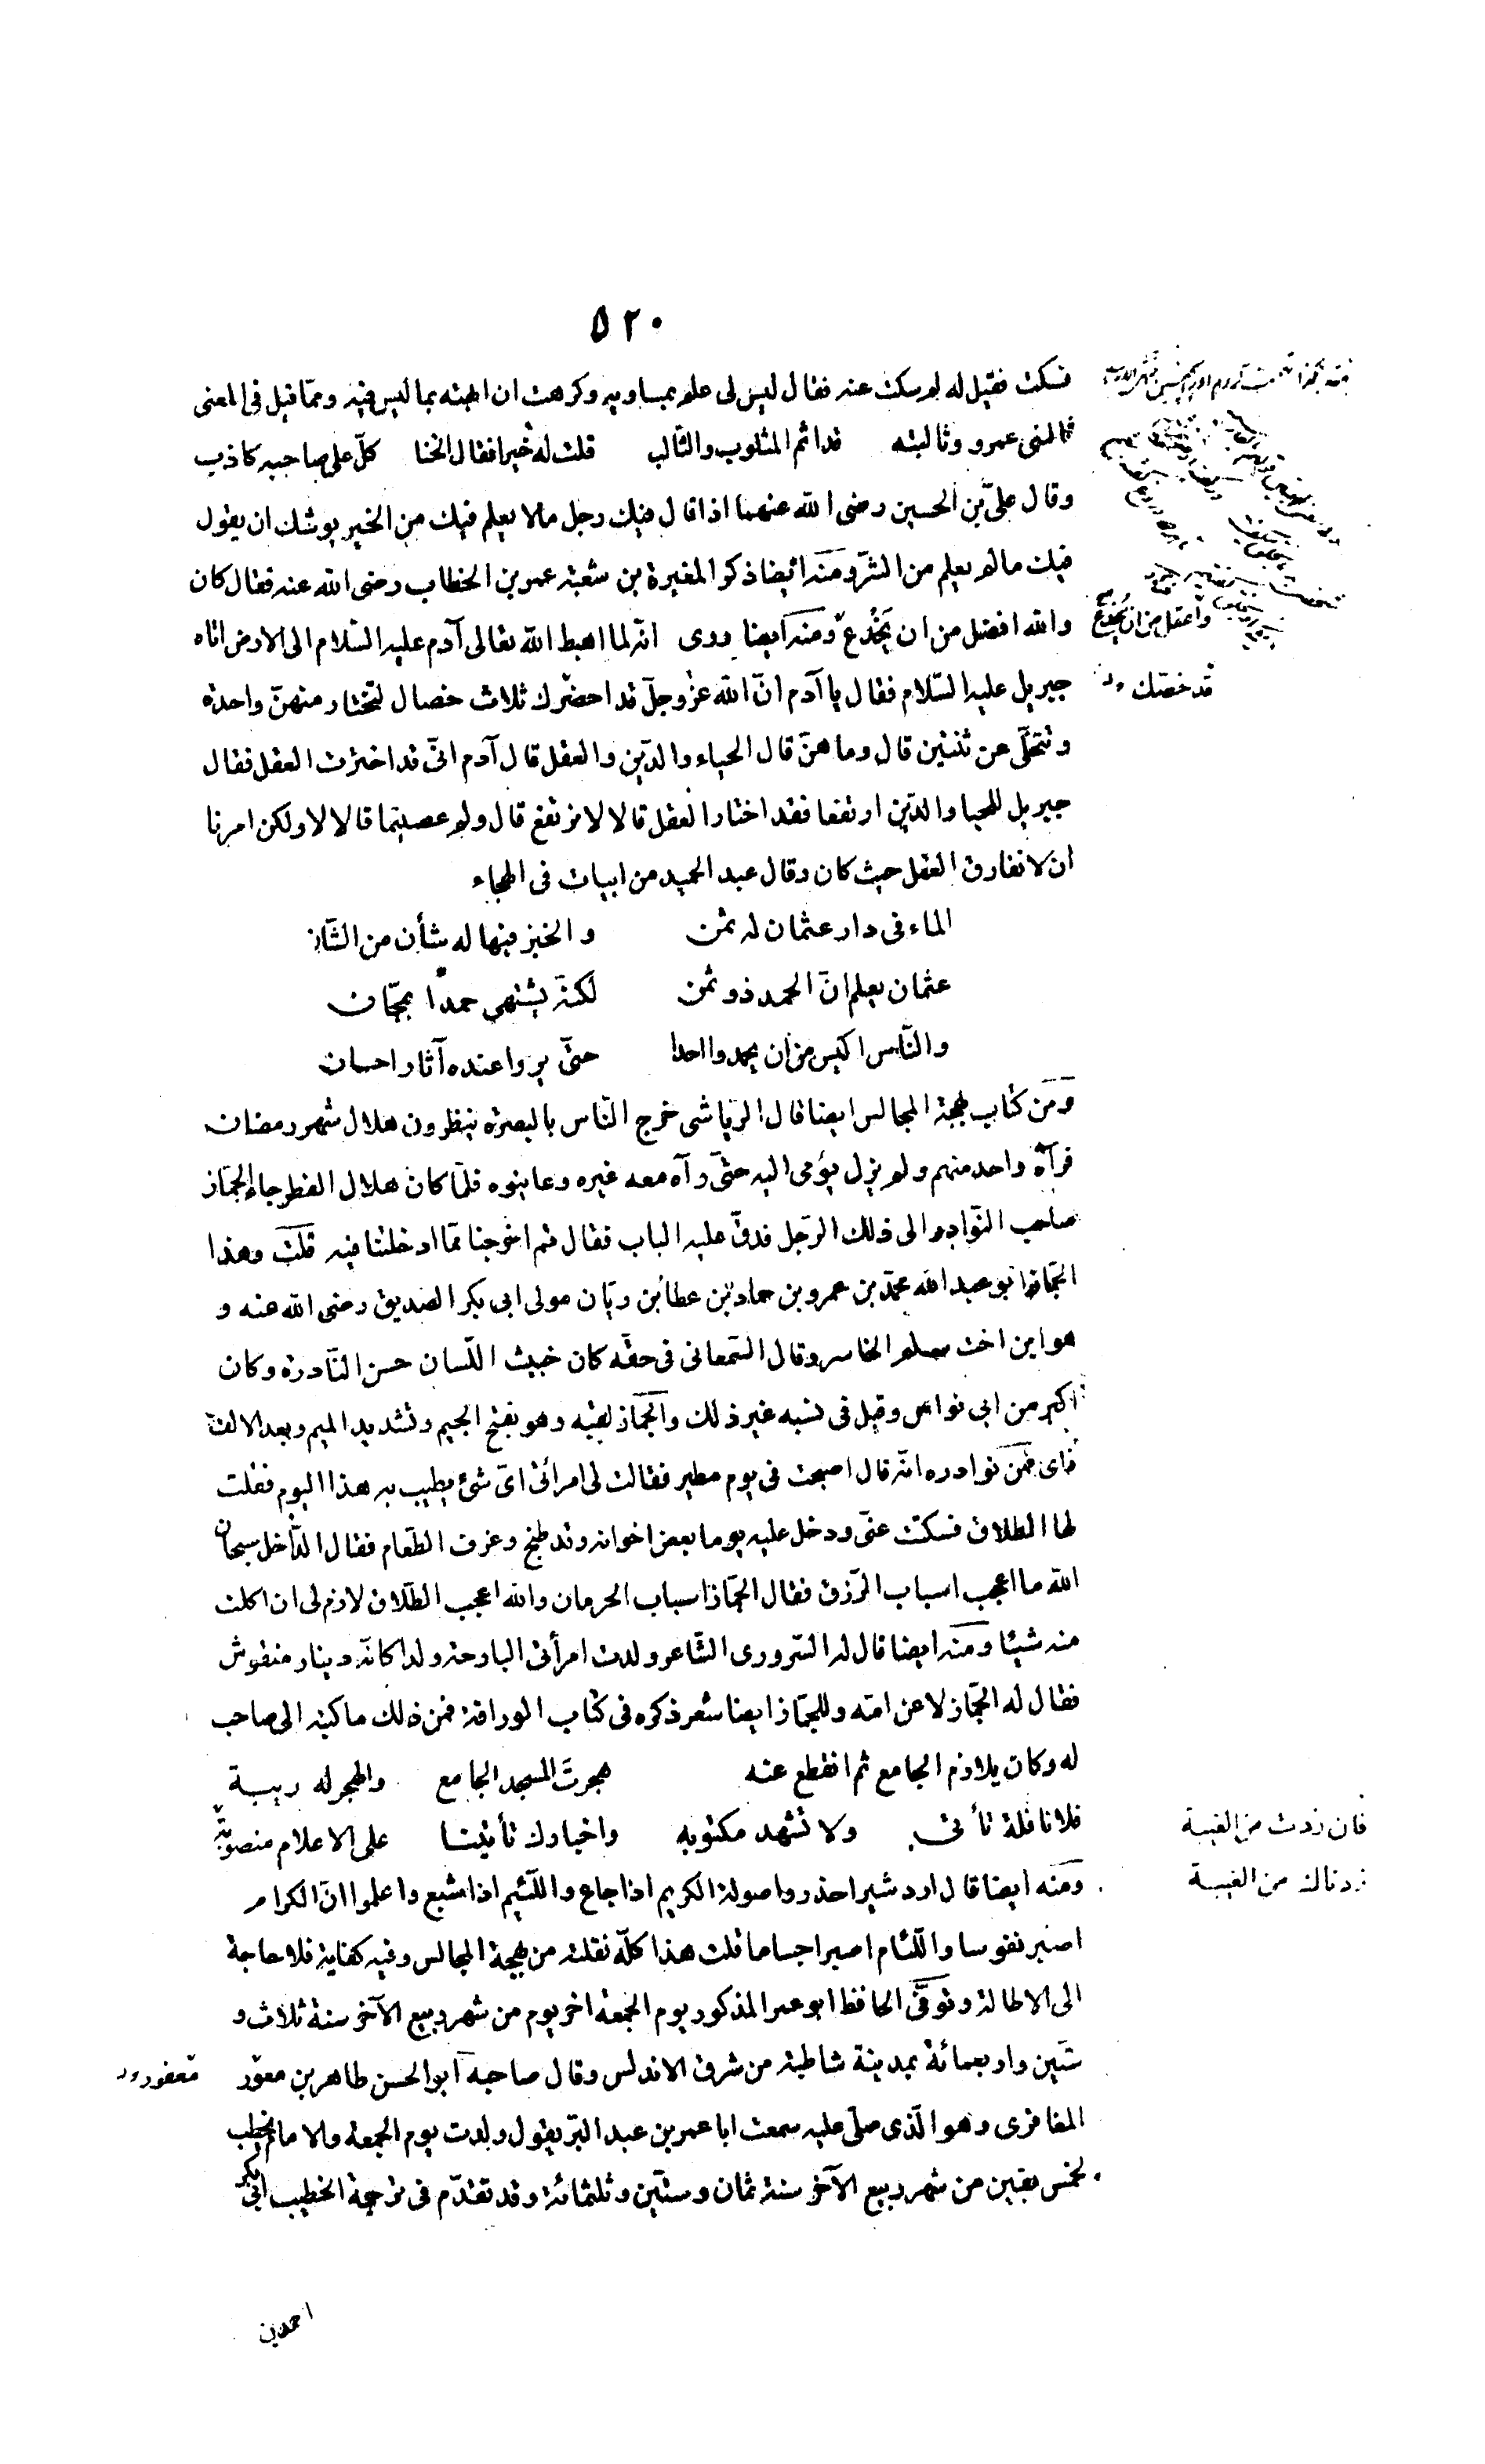 ٥٢٠
فسكت فقيل له لم سكت عنه فقال ليس لى علم بمساويه وكرهت ان ابهته بما ليس فيه وممّا قيل فى المعنى
ثالبنى عمرو وثالبته قد اثم المثلوب والثّالب قلت له خيرا فقال الخنا كلّ على صاحبه كاذب
وقال علىّ بن الحسين رضى الله عنهما اذا قال فيك رجل مالا يعلم فيك من الخير يوشك ان يقول
فيك مالم يعلم من الشرّ ومنه ايضا ذكر المغيرة بن شعبة عمر بن الخطاب رضى الله عنه فقال كان
والله افضل من ان يَخْدع ومنه ايضا روى انّه لما اهبط الله تعالى آدم عليه السّلام الى الارض اتاه
وأعقل من ان يُخدع
جبريل عليه السّلام فقال يا آدم انّ الله عزّ وجلّ قد احضرك ثلاث خصال لتختار منهنّ واحدة
قد خصّك
وتتخلّى عن ثنتين قال وما هنّ قال الحياء والدّين والعقل قال آدم انّى قد اخترت العقل فقال
جبريل للحيا والدّين ارتفعا فقد اختار العقل قالا لا نرتفع قال ولم عصيتما قالا لا ولكن امرنا
ان لا نفارق العقل حيث كان وقال عبد الحميد من ابيات فى الهجاء
الماء فى دار عثمان له ثمن والخبز فيها له شأن من الشّان
عثمان يعلم انّ الحمد ذو ثمن لكنّه يشتهى حمدًا بمجّان
والنّاس اكيس من ان يحمدوا احدا حتّى يروا عنده آثار احسان
ومن كتاب بهجة المجالس ايضا قال الرّياشى خرج النّاس بالبصرة ينظرون هلال شهر رمضان
فرآه واحد منهم ولم يزل يؤمى اليه حتّى رآه معه غيره وعاينوه فلمّا كان هلال الفطر جاء الجمّاز
صاحب النّوادر الى ذلك الرّجل فدقّ عليه الباب فقال قم اخرجنا ممّا ادخلتنا فيه قلت وهذا
الجمّاز ابو عبد الله محمّد بن عمرو بن حماد بن عطا بن ريّان مولى ابى بكر الصديق رضى الله عنه و
هو ابن اخت سلم الخاسر وقال السّمعانى فى حقّه كان خبيث اللّسان حسن النّادرة وكان
اكبر من ابى نواس وقيل فى نسبه غير ذلك والجمّاز لقبه وهو بفتح الجيم وتشديد الميم وبعد الالف
زاى فمن نوادره انّه قال اصبحت فى يوم مطير فقالت لى امرأتى اىّ شئ يطيب به هذا اليوم فقلت
لها الطلاق فسكتت عنّى ودخل عليه يوما بعض اخوانه وقد طبخ وغرف الطّعام فقال الدّاخل سبحان
الله ما اعجب اسباب الرّزق فقال الجمّاز اسباب الحرمان والله اعجب الطّلاق لازم لى ان اكلت
منه شيئا ومنه ايضا قال له السّرورى الشّاعر ولدت امرأتى البارحة ولدا كانّه دينار منقوش
فقال له الجمّاز لاعن امّه وللجمّاز ايضا شعر ذكره فى كتاب الوراقة فمن ذلك ما كتبه الى صاحب
له وكان يلازم الجامع ثم انقطع عنه هجرتَ المسجد الجامع والهجر له ريبة
فلا نافلة تأتى ولا تشهد مكتوبه واخبارك تأتينا على الاعلام منصوبة
فان زدت من الغيبة
زدناك من الغيبة
ومنه ايضا قال اردشير احذروا صولة الكريم اذا جاع واللّئيم اذا شبع واعلموا انّ الكرام
اصبر نفوسا واللّئام اصبر اجساما قلت هذا كلّه نقلته من بهجة المجالس وفيه كفاية فلا حاجة
الى الاطالة وتوفّى الحافظ ابو عمر المذكور يوم الجمعة اخر يوم من شهر ربيع الآخر سنة ثلاث و
ستّين واربعمائة بمدينة شاطبة من شرق الاندلس وقال صاحبه ابو الحسن طاهر بن معوّر
المغافرى وهو الّذى صلّى عليه سمعت ابا عمر بن عبد البرّ يقول ولدت يوم الجمعة والامام يخطب
لخمس بقين من شهر ربيع الآخر سنة ثمان وستّين وثلثمائة وقد تقدّم فى ترجمة الخطيب ابى بكر
احمد بن